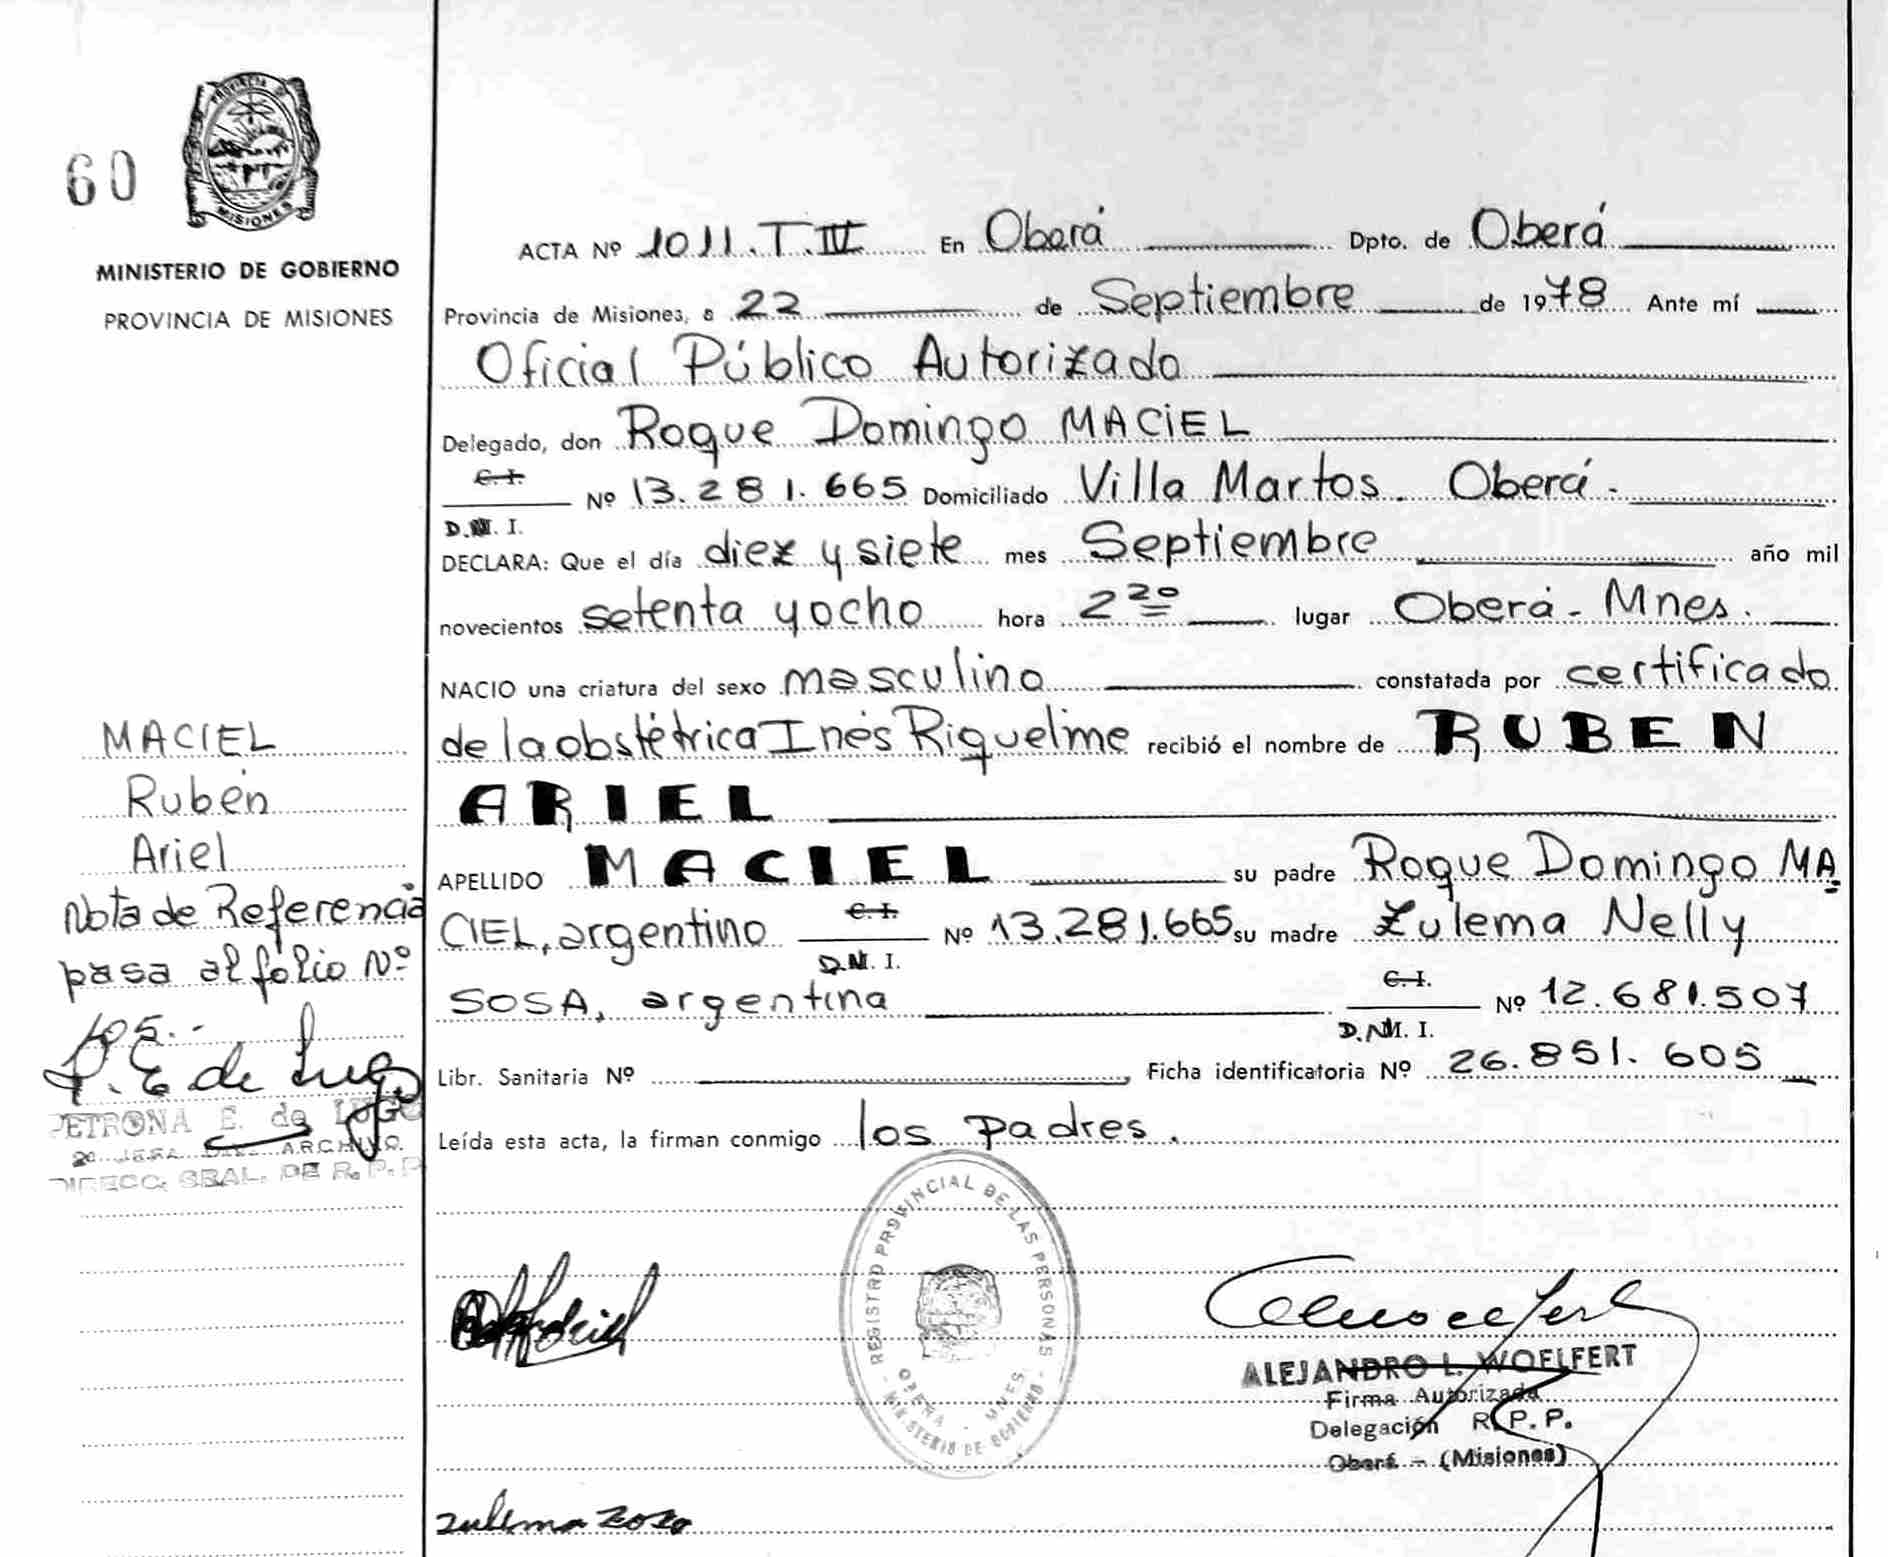 60
PROVINCIA DE
MISIONES
MINISTERIO DE GOBIERNO
PROVINCIA DE MISIONES
ACTA Nº 1011.T.III En Oberá Dpto. de Oberá
Provincia de Misiones, a 22 de Septiembre de 1978 Ante mí
Oficial Público Autorizado
Delegado, don Roque Domingo MACIEL
C.I.
Nº 13.281.665 Domiciliado Villa Martos. Oberá.
D.N.I.
DECLARA: Que el día diez y siete mes Septiembre año mil
novecientos setenta y ocho hora 2 20 lugar Oberá - Mnes.
NACIO una criatura del sexo masculino constatada por certificado
de la obstétrica Inés Riquelme recibió el nombre de RUBEN
ARIEL
APELLIDO MACIEL su padre Roque Domingo MA
CIEL, argentino C.I. Nº 13.281.665 su madre Zulema Nelly
D.N.I.
SOSA, argentina C.I. Nº 12.681.507
D.N.I.
Libr. Sanitaria Nº Ficha identificatoria Nº 26.851.605
Leída esta acta, la firman conmigo los padres.
MACIEL
Rubén
Ariel
Nota de Referencia
pasa al folio Nº
105.-
P. E de Lugo
PETRONA E. de LUGO
ARCHIVO.
DIRECC. GRAL. DE R. P. P.
REGISTRO PROVINCIAL DE LAS PERSONAS
- MINISTERIO DE GOBIERNO -
OBERA - MNES.
ALEJANDRO L. WOELFERT
Firma Autorizada
Delegación R. P. P.
Oberá - (Misiones)
zulema sosa